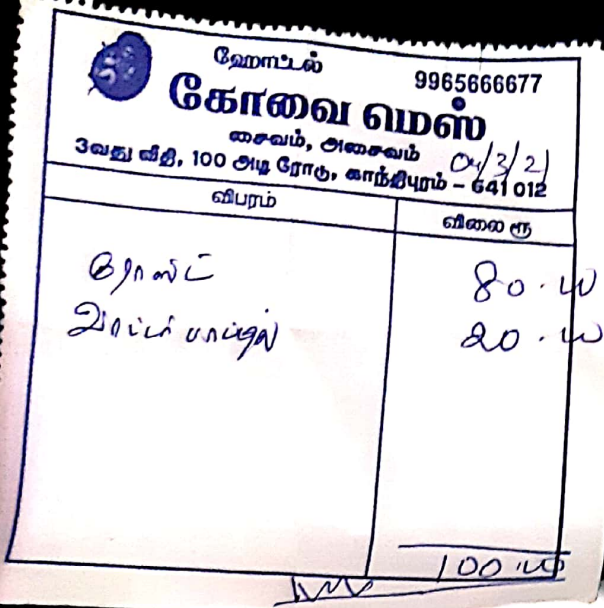 ஹோட்டல்
9965666677
கோவை மெஸ்
சைவம், அசைவம்
04/3/21
3வது வீதி, 100 அடி ரோடு, காந்திபுரம் - 641 012
விபரம் விலை ரூ
ரோஸ்ட் 80.00
வாட்டர் பாட்டில் 20.00
100.00